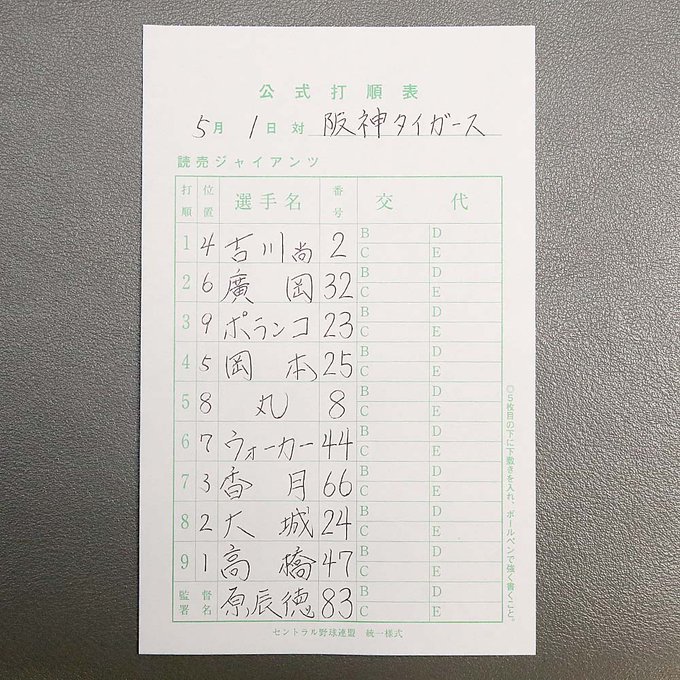 公式打順表
5月1日対 阪神タイガース
読売ジャイアンツ
打順 位置 選手名 番号 交代
1 4 吉川尚 2 B D
C E
2 6 廣岡 32 B D
C E
3 9 ポランコ 23 B D
C E
4 5 岡本 25 B D
C E
5 8 丸 8 B D
C E
6 7 ウォーカー 44 B D
C E
7 3 香月 66 B D
C E
8 2 大城 24 B D
C E
9 1 高橋 47 B D
C E
監督署名 原辰徳 83 B D
C E
◎5枚目の下に下敷きを入れ、ボールペンで強く書くこと。
セントラル野球連盟 統一様式